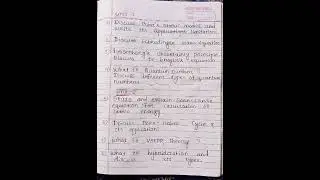 Unit-1
Discuss Bohr's atomic model and
write its applications limitation
Discuss Schrodinger wave equation
Heisenberg's uncertainty principle
Discuss De broglie's equation
What is Quantum number
Discuss different types of quantum
numbers
Unit-2
State and explain
equation for calculation of
energy
Discuss Born-Haber Cycle &
its application
What is VSEPR theory?
What is hybridization and
discuss its types